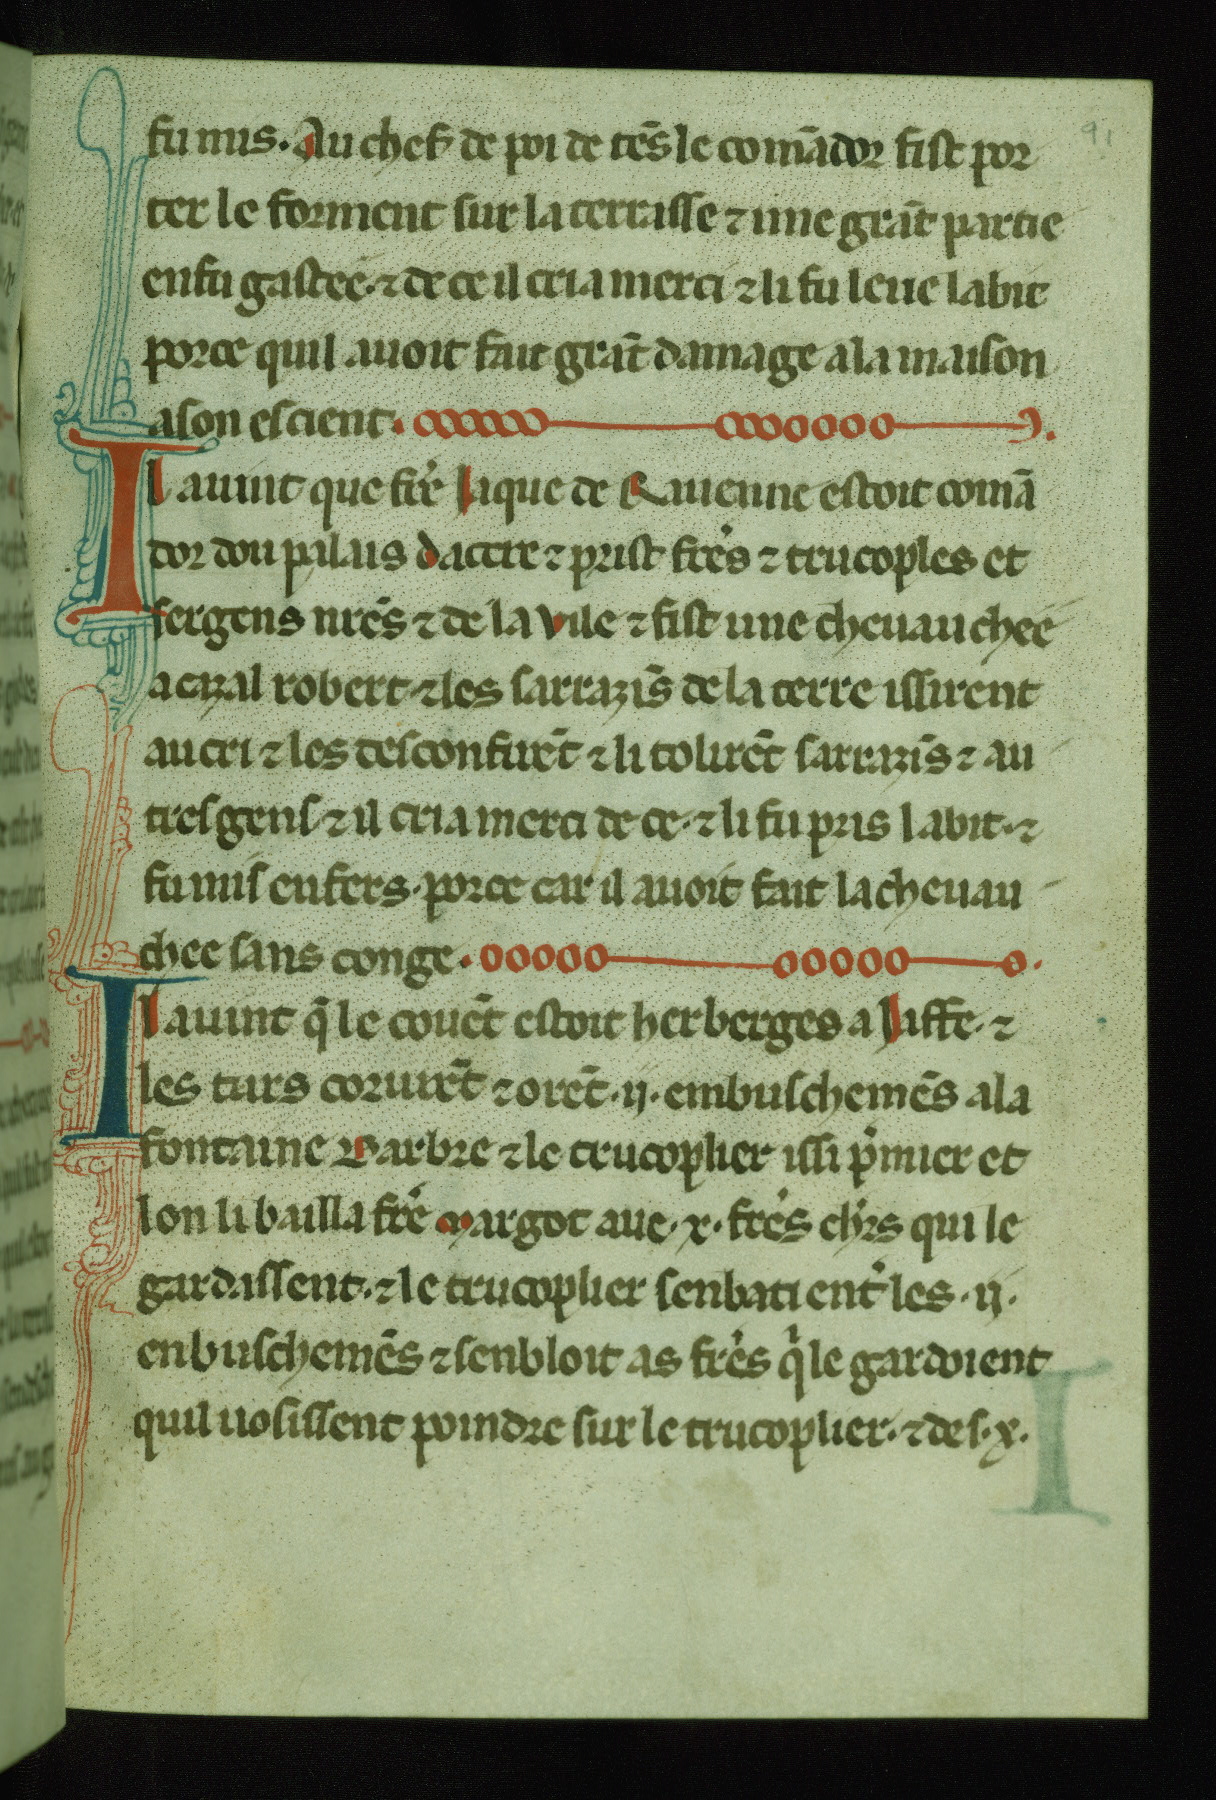 91
fu mis. Au chef de poi de tẽs le comãdor fist por
ter le forment sur la terrasse ⁊ une grãt partie
en fu gastee. ⁊ de ce il cria merci ⁊ li fu leue labit
porce quil auoit fait grãt damage a la maison
a son escient.
Il auint que frẽ Jaque de Rauenne estoit comã
dor dou palais dacre ⁊ prist frẽs ⁊ trucoples et
sergens nrẽs ⁊ de la vile ⁊ fist une cheuauchee
a cazal robert. ⁊ les sarrazĩs de la terre issirent
au cri ⁊ les desconfirẽt ⁊ li tolirẽt sarrazĩs ⁊ au
tres gens. ⁊ il cria merci de ce. ⁊ li fu pris labit. ⁊
fu mis en fers. porce car il auoit fait la cheuau
chee sans conge.
Il auint q̃ le couẽt estoit herberges a Jaffe. ⁊
les turs corurẽt ⁊ orẽt .ij. embuschemẽs a la
fontaine Barbre ⁊ le trucoplier issi p̃mier et
lon li bailla frẽ Margot aue .x. frẽs chrs̃ qui le
gardissent. ⁊ le trucoplier senbati ent̃ les .ij.
enbuschemẽs ⁊ senbloit as frẽs q̃ le gardoient
quil uosissent poindre sur le trucoplier. ⁊ des .x.